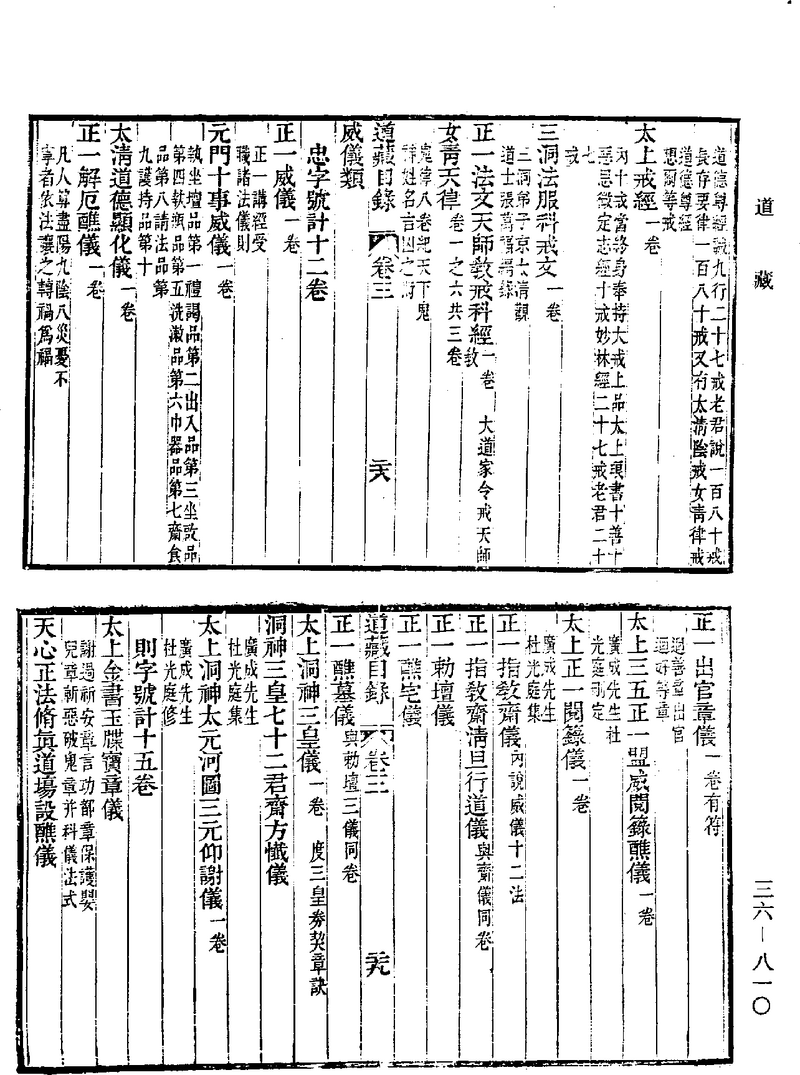 道藏
道德尊經誡九行二十七戒老君說一百八十戒
長存要律一百八十戒又有太清陰戒女青律戒
道德尊經
想爾等戒
太上戒經一卷
內十戒當終身奉持大戒上品太上
惡思微定志經十戒妙林經二十七戒老君二十
七戒
三洞法服科戒文一卷
三洞弟子京太清觀
道士張萬福編錄
正一法文天師教戒科經一卷 大道家令戒天師教
女青天律卷一之六共三卷
鬼律八卷紀天下鬼
神姓名吉凶之
道藏目錄 卷三 二十八
威儀類
忠字號計十二卷
正一威儀一卷
正一講經受
職諸法儀則
元門十事威儀一卷
執坐壇品第一禮謁品第二出入品第三坐起品
第四執瓶品第五洗漱品第六巾器品第七齋食
品第八請法品第
九護持品第十
太清道德顯化儀一卷
正一解厄醮儀一卷
凡人算盡陽九陰八災憂不
寧者依法禳之轉禍為福
正一出官章儀一卷有符
迴善章出官
迴好等章
太上三五正一盟威閱籙醮儀一卷
廣成先生杜
光庭刪定
太上正一閱籙儀一卷
廣成先生
杜光庭集
正一指教齋儀內說威儀十二法
正一指教齋清旦行道儀與齋儀同卷
正一勅壇儀
正一醮宅儀
道藏目錄 卷三 二十九
正一醮墓儀與勅壇三儀同卷
太上洞神三皇儀一卷 度三皇券契章訣
洞神三皇七十二君齋方懺儀
廣成先生
杜光庭集
太上洞神太元河圖三元仰謝儀一卷
廣成先生
杜光庭修
則字號計十五卷
太上金書玉牒寶章儀
謝過祈安章言功部章保護嬰
兒章斬惡破鬼章并科儀法式
天心正法脩真道場設醮儀
三六—八一〇